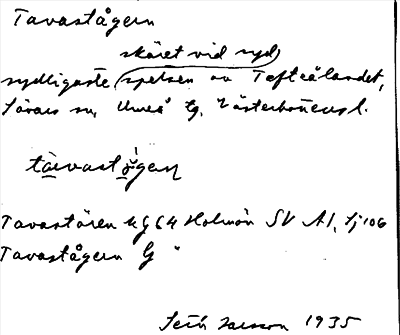 Tavastågern
skäret vid syd
sydligaste spetsen av Tefteålandet,
Sävars sn, Umeå tg. Västerbottens l.
tavastågern
Tavastören kg 64 Holmön SV A1, Sj 106
Tavastågern G "
1935